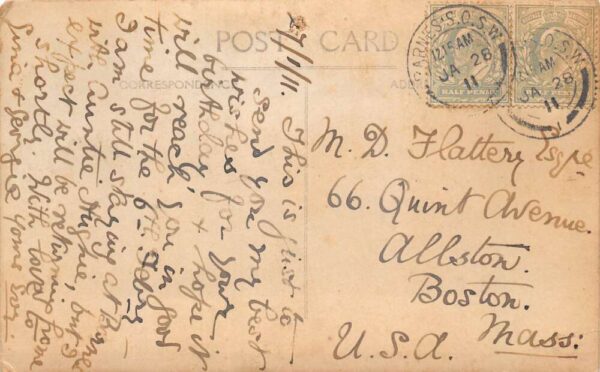 POST CARD
CORRESPONDENCE
27/1/11. This is just to
send you my best
wishes for your
birthday + hope it
will reach you in good
time for the 6th Feby
I am still staying at B-
with Auntie but I
expect will be returning home
shortly. With love to
Gina & Georgie yours
BARNES S.O. S.W.
12.15 AM
JA 28
11
S.O. S.W.
AM
JA 28
11
HALF PENNY
HALF PENNY
M. D. Flattery Esqre
66. Quint Avenue.
Allston.
Boston.
Mass:
U.S.A.